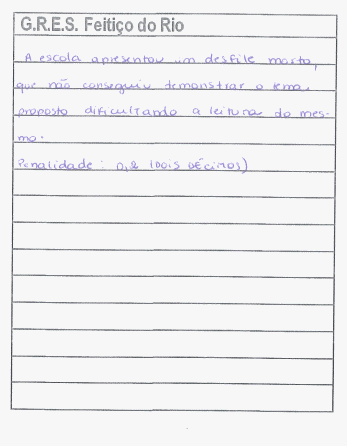 G.R.E.S. Feitiço do Rio
A escola apresentou um desfile morto,
que não conseguiu demonstrar o tema
proposto dificultando a leitura do mes-
mo.
Penalidade: 0,2 (dois décimos)